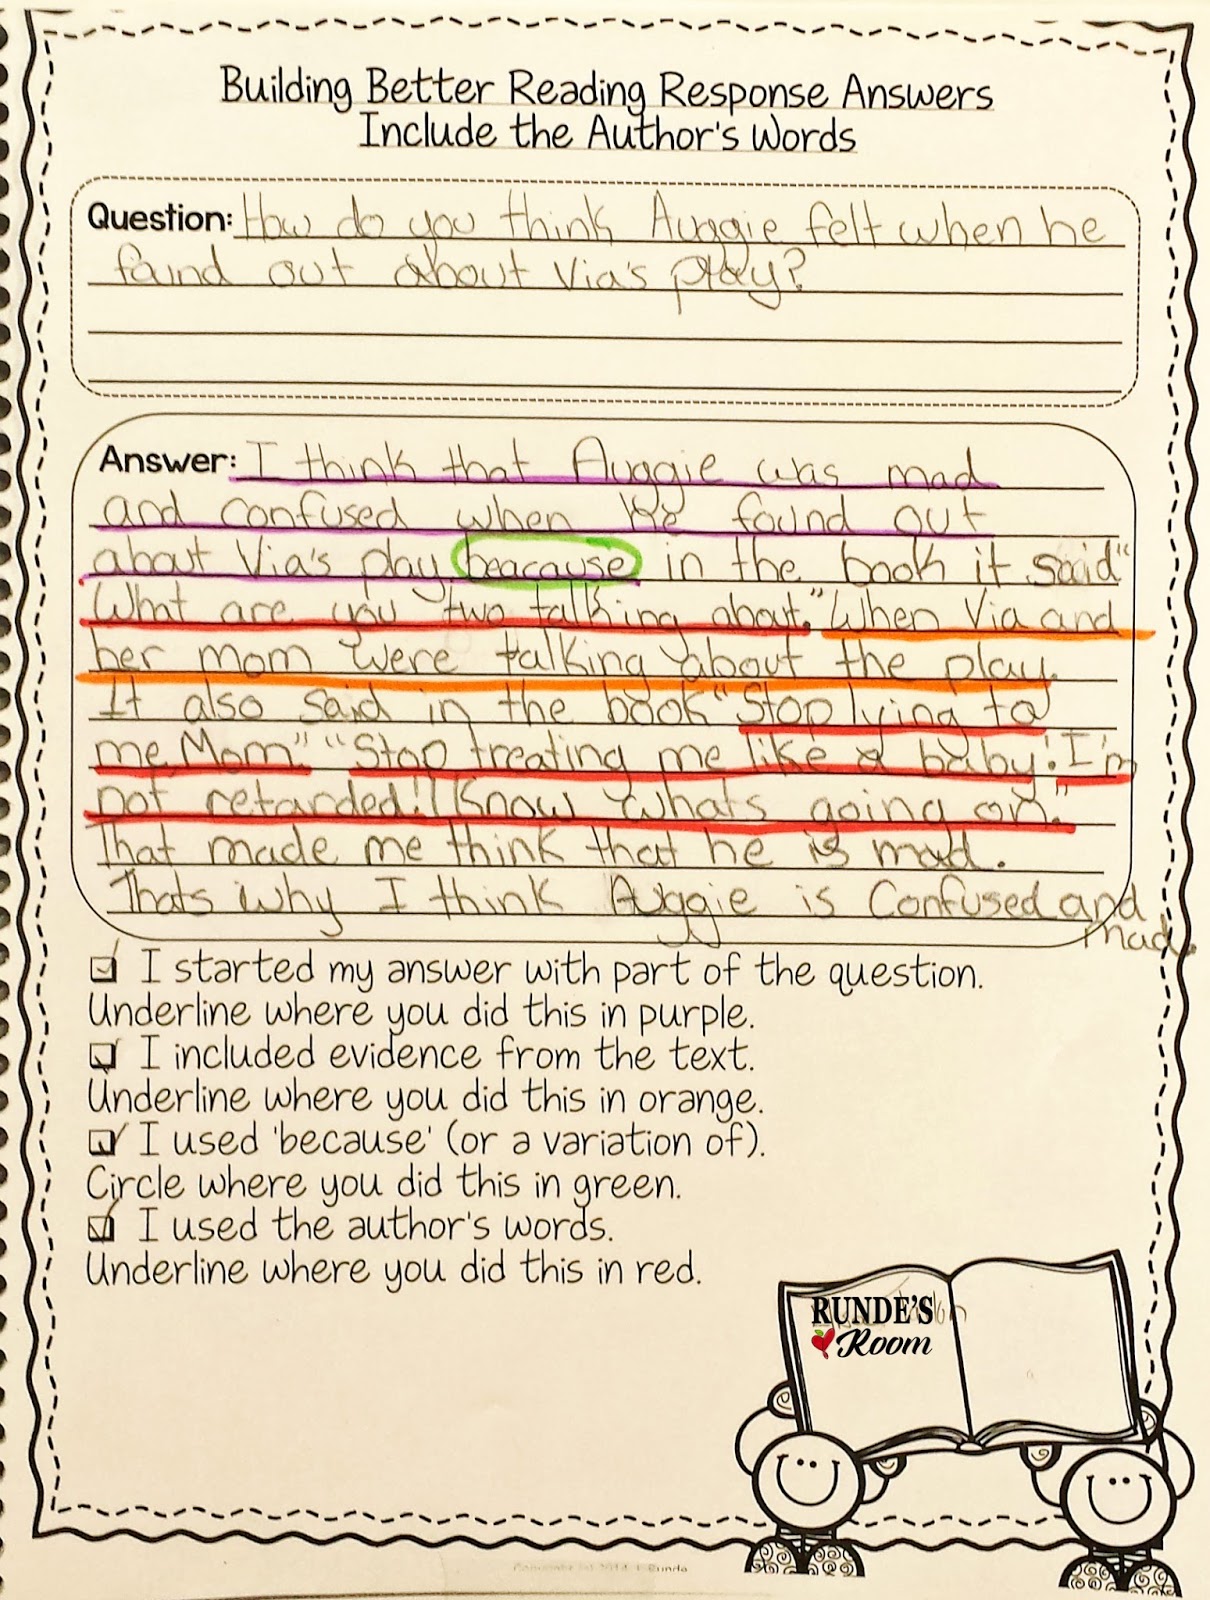 Building Better Reading Response Answers
Include the Author's Words
Question: How do you think Auggie felt when he
faind out about Via's play?
Answer: I think that Auggie was mad
and confused when he found out
about Via's play beacause in the book it said"
What are you two talking about." When Via and
her mom were talking about the play.
It also said in the book "Stop lying to
me Mom" "Stop treating me like a baby! I'm
not retarded! I Know whats going on."
That made me think that he is mad.
Thats why I think Auggie is Confused and
mad.
I started my answer with part of the question.
Underline where you did this in purple.
I included evidence from the text.
Underline where you did this in orange.
I used 'because' (or a variation of).
Circle where you did this in green.
I used the author's words.
Underline where you did this in red.
RUNDE'S
Room